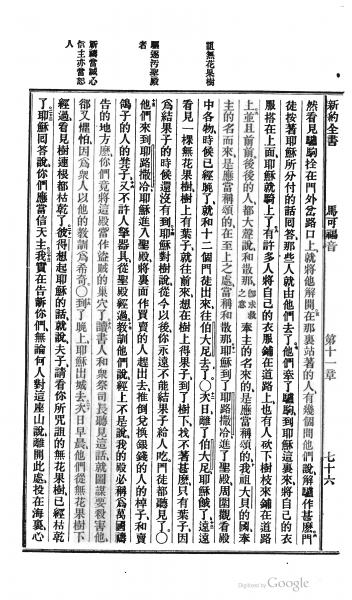 新約全書　馬可福音　第十一章　七十六
然看見驢駒拴在門外岔路口上、就將他解開、在那裏站著的人、有幾個問他們說、解驢作甚麼、門
徒按著耶穌所分付的話回答、那些人就由他們去了、他們牽了驢駒到耶穌這裏來、將自己的衣
服搭在上面、耶穌就騎上了、有許多人將自己的衣服鋪在道路上、也有人砍下樹枝來鋪在道路
上、並且前前後後的人、都大聲說、和散那、卽求救之意奉主的名來的、是應當稱頌的、我祖大貝的國、奉
主的名而來、是應當稱頌的、在至上之處當稱和散那、耶穌到了耶路撒冷、進了聖殿、周圍觀看殿
中各物、時候已經晚了、就和十二個門徒出來、往伯大尼去了、〇次日離了伯大尼、耶穌餓了、遠遠
看見一棵無花果樹、樹上有葉子、就往前來、想在樹上得果子、到了樹下、找不著甚麼、只有葉子、因
爲結果子的時候還沒有到、耶穌對樹說、從今以後、你永遠不能結果子給人吃、門徒都聽見了、〇
他們來到耶路撒冷、耶穌進了聖殿、將裏面作買賣的人趕出去、推倒兌換銀錢的人的棹子、和賣
鴿子的人的凳子、又不許人拏器具、從聖殿經過、教訓他們說、經上不是說、我的殿必稱爲萬國禱
告的地方麽、你們竟將這殿當作盜賊的巢穴了、讀書人和衆祭司長聽見這話、就圖謀要殺害他、
卻又懼怕、因爲衆人以他的教訓爲希奇、〇到了晚上、耶穌出城去、次日早晨、他們從無花果樹下
經過、看見樹連根都枯乾了、彼得想起耶穌的話、就說、夫子請看、你所咒詛的無花果樹、已經枯乾
了、耶穌回答說、你們應當信天主、我實在告訴你們、無論何人對這座山說、離開此處、投在海裏、心
詛無花果樹
驅逐污聖殿
者
祈禱當誠心
信主亦當恕
人
Digitized by Google